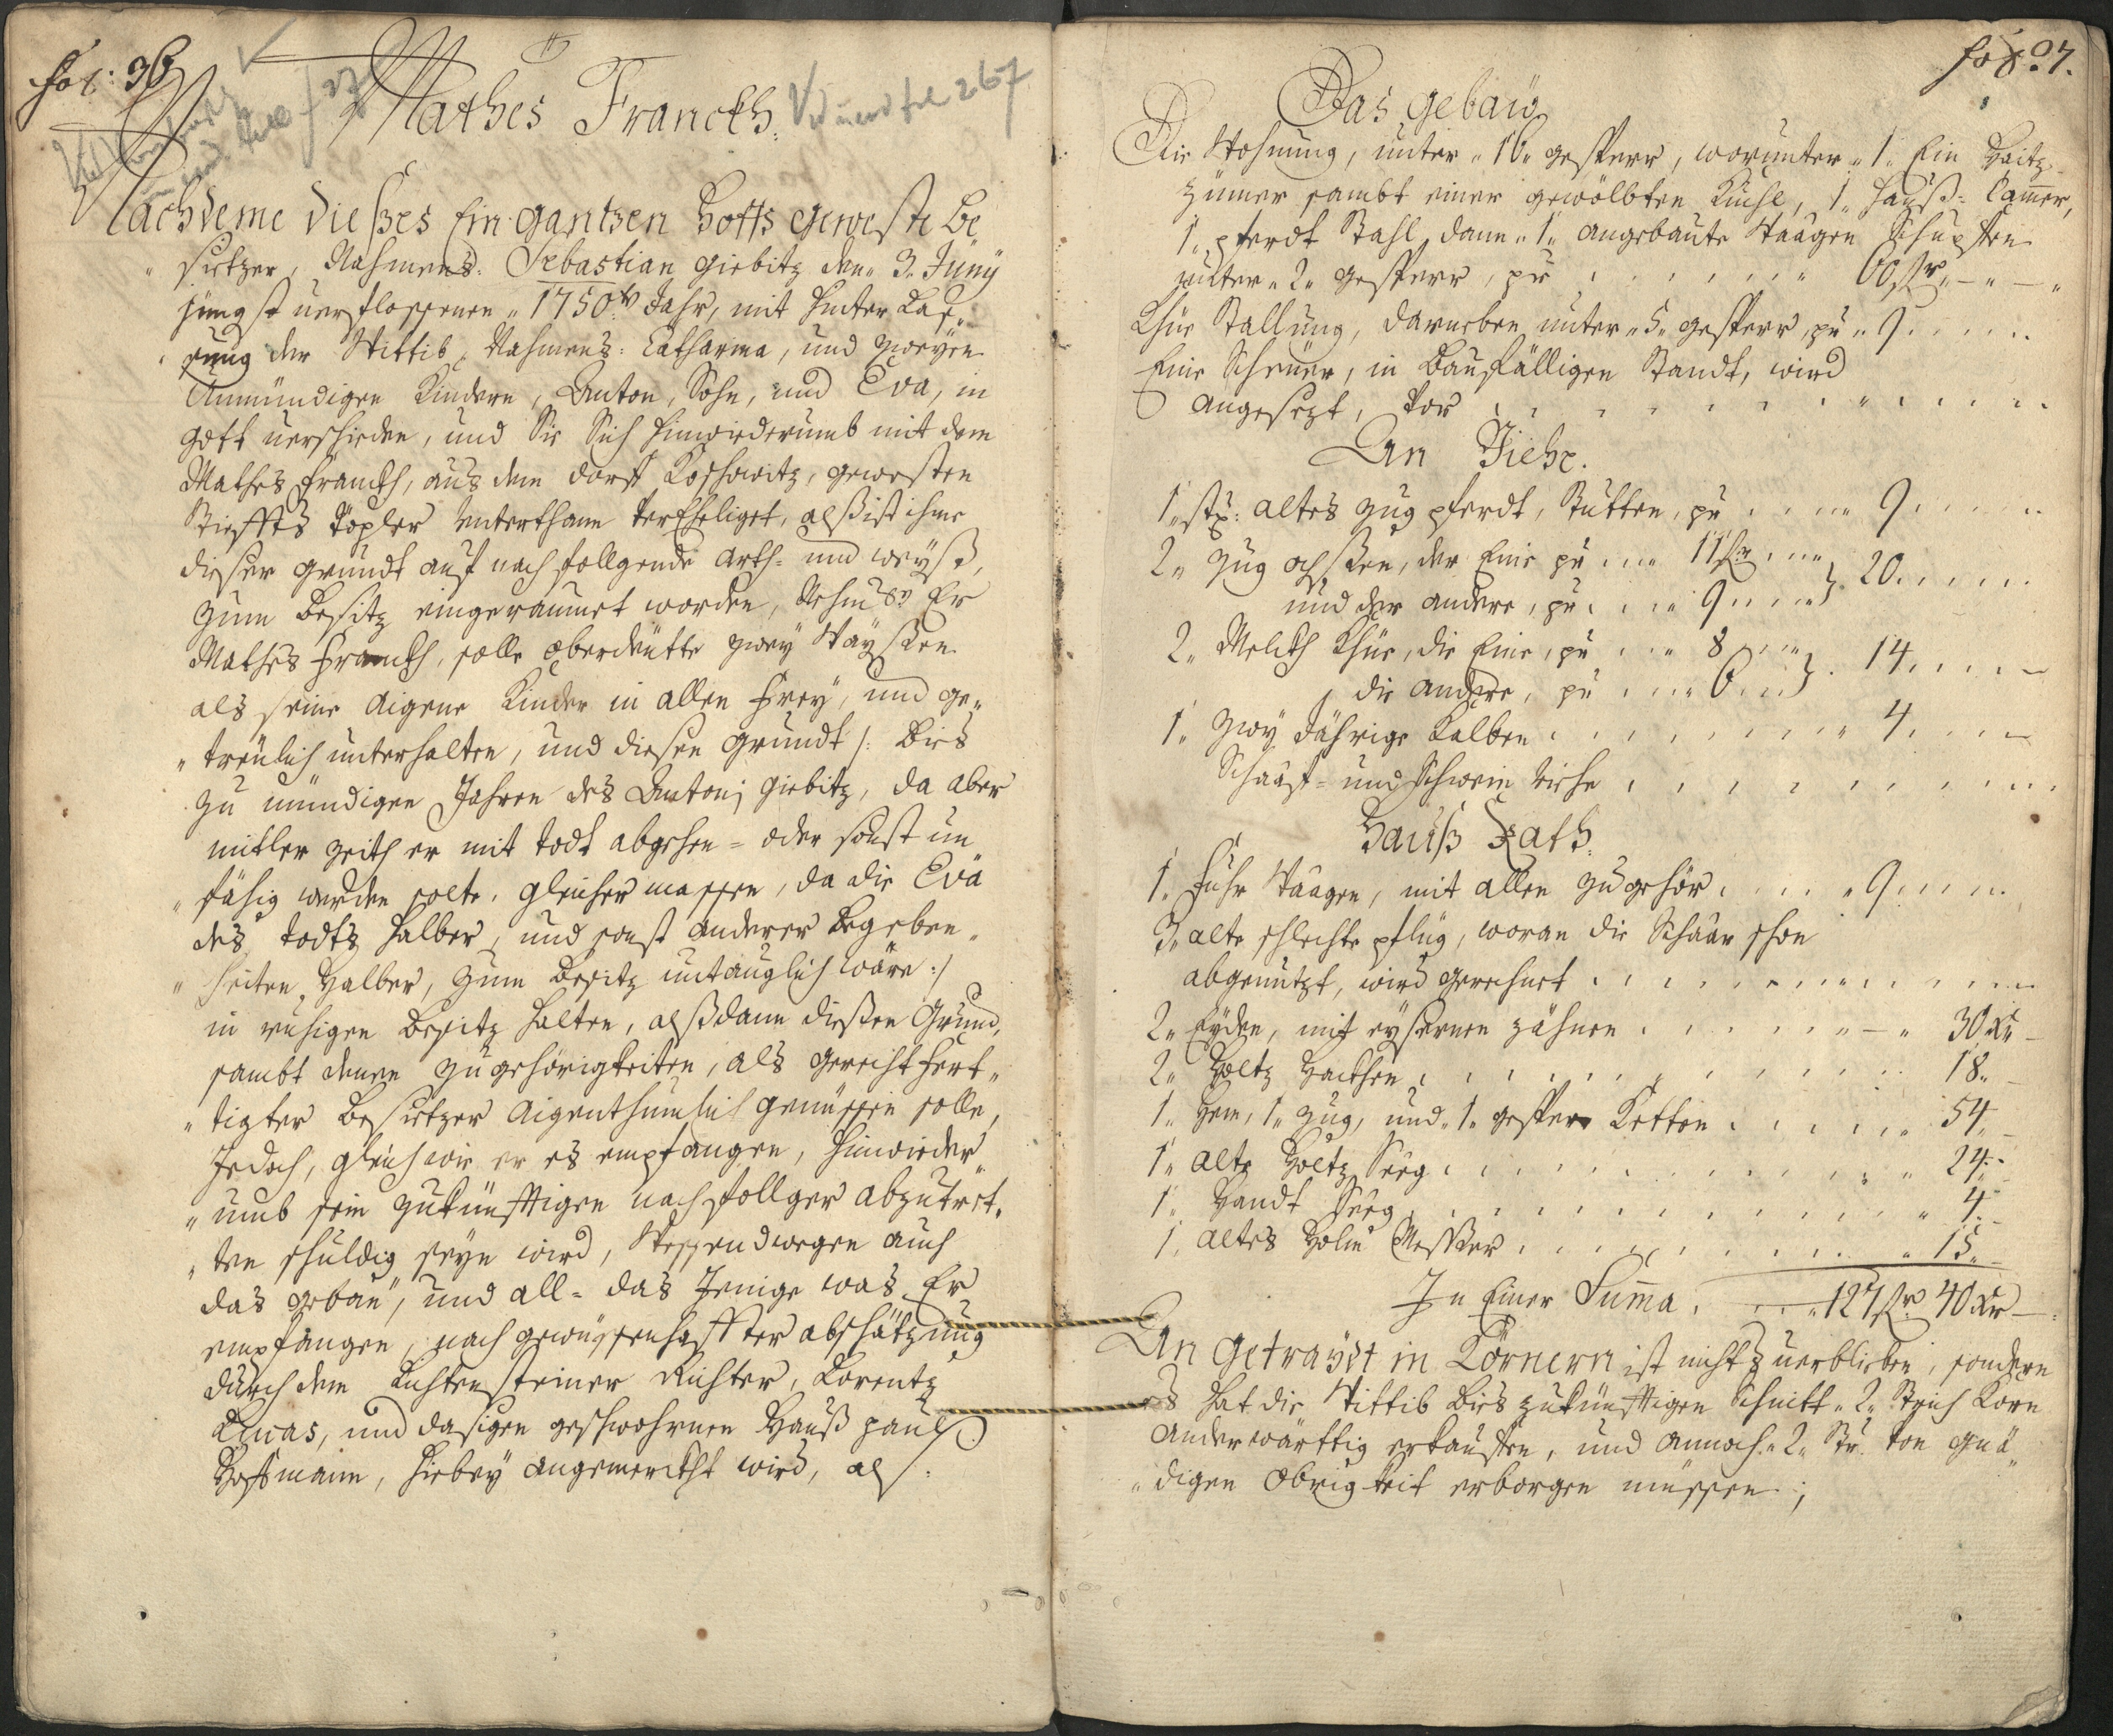 fol: 36
Mathes Franckh.
Vid und fol 267
Nachdeme dießes Ein gantzen Hoffs geweste Be
„sietzer, Nahmens: Sebastian Giebitz den 3. Juny
jüngst verflossenen „1750.tn Jahr, mit hinter Laß„
„sung der Wittib, Nahmens: Catharina, und zweyen
Unmündigen Kindern, Anton, Sohn, und Eva, in
Gott verschieden, und Sie Sich hinwiederumb mit dem
Mathes Franckh, aus dem dorff Koschowitz, gewesten
Stieffts Töpler Unterthann Verehliget, alß ist ihme
dieser Grundt auf nach follgende Arth- und weyß,
zum Besitz eingeraumet worden, Er
Mathes Franckh, solle oberdeutte zwey Wayßen
als seine Aigene Kinder in allen Frey, und ge„
„treulich unterhalten, und diesen Grundt /: bies
zu mündigen Jahren des Antonj Giebitz, da aber
mitler zeith er mit Todt abgehen- oder sonst un
„fähig werden solte, gleichermassen, da die Eva
des Todts halber, und sonst anderer Begeben„
„heiten halber, zum Besitz untauglich wäre :/
in ruhigen Besitz halten, alßdann dießen Grund,
sambt denen zugehörigkeiten, als gerechtfert„
„tigter Besietzer Aigenthumlich genüssen solle,
Jedoch, gleichwie er es empfangen, hinwieder„
„umb sein zukünfftigen nachfollger abzutret„
„ten schuldig seyn wird, Wessendwegen auch
das gebau, und all- das Jenige was Er
empfangen, nach gewüssenhaffter abschätzung
durch dem Lichtensteiner Richter, Lorentz
Lucas, und dasigen geschwohrnen Hanß paul
Hoffmann, hiebey angemerckht wird, alß:
fol: 37.
Das Gebäu
Die Wohnung, unter „16„ gesperr, worunter „1„ Ein Heitz
zümer sambt einer gewölbten Kuchl, 1„ Hauß- Camer,
1„ pferdt Stahl, dann „1„ angebaute Waagen Schupffen
unter „2„ gesperr, pr 60 fl„ — „ — „
Khüe Stallung, darneben unter „5„ gesperr, pr „ 9
Eine Scheüer, in Baufälligen Standt, wird
angesezt, vor
An Viehe.
1„ stk: altes Zug pferdt, Stutten, pr 9
2„ Zug ochsen, der Eine pr 11 fl
und der andere, pr 9 } 20
2„ Melckh Khüe, die Eine, pr 8
die andere, pr 6 } 14
1„ Zwey Jährige Kalben 4
Schaaff- und Schwein viehe
Hauß Rath.
1„ Fuhr Waagen, mit allen zugehör 9
3„ alte schlechte pflüg, woran die Schaar schon
abgenutzt, wird gerechnet
2„ Eyden, mit eysernen zähnen — „ 30 Xr
2„ Holtz Hackhen 18„
1„ Hem, 1„ Zug, und „1„ gesperr Ketten 54„
1„ alte Holtz Seeg 24„
1„ Handt Seeg 4
1„ altes Messer 15„
In Einer Suma 127 fl 40 Xr —
An Getraydt in Körnern ist nichts verblieben, sondern
es hat die Wittib bies zukünfftigen Schnitt „2„ Strich Korn
anderwärttig erkauffen, und annoch „2„ Str. von gnä
„digen Obrigkeit erborgen müssen;